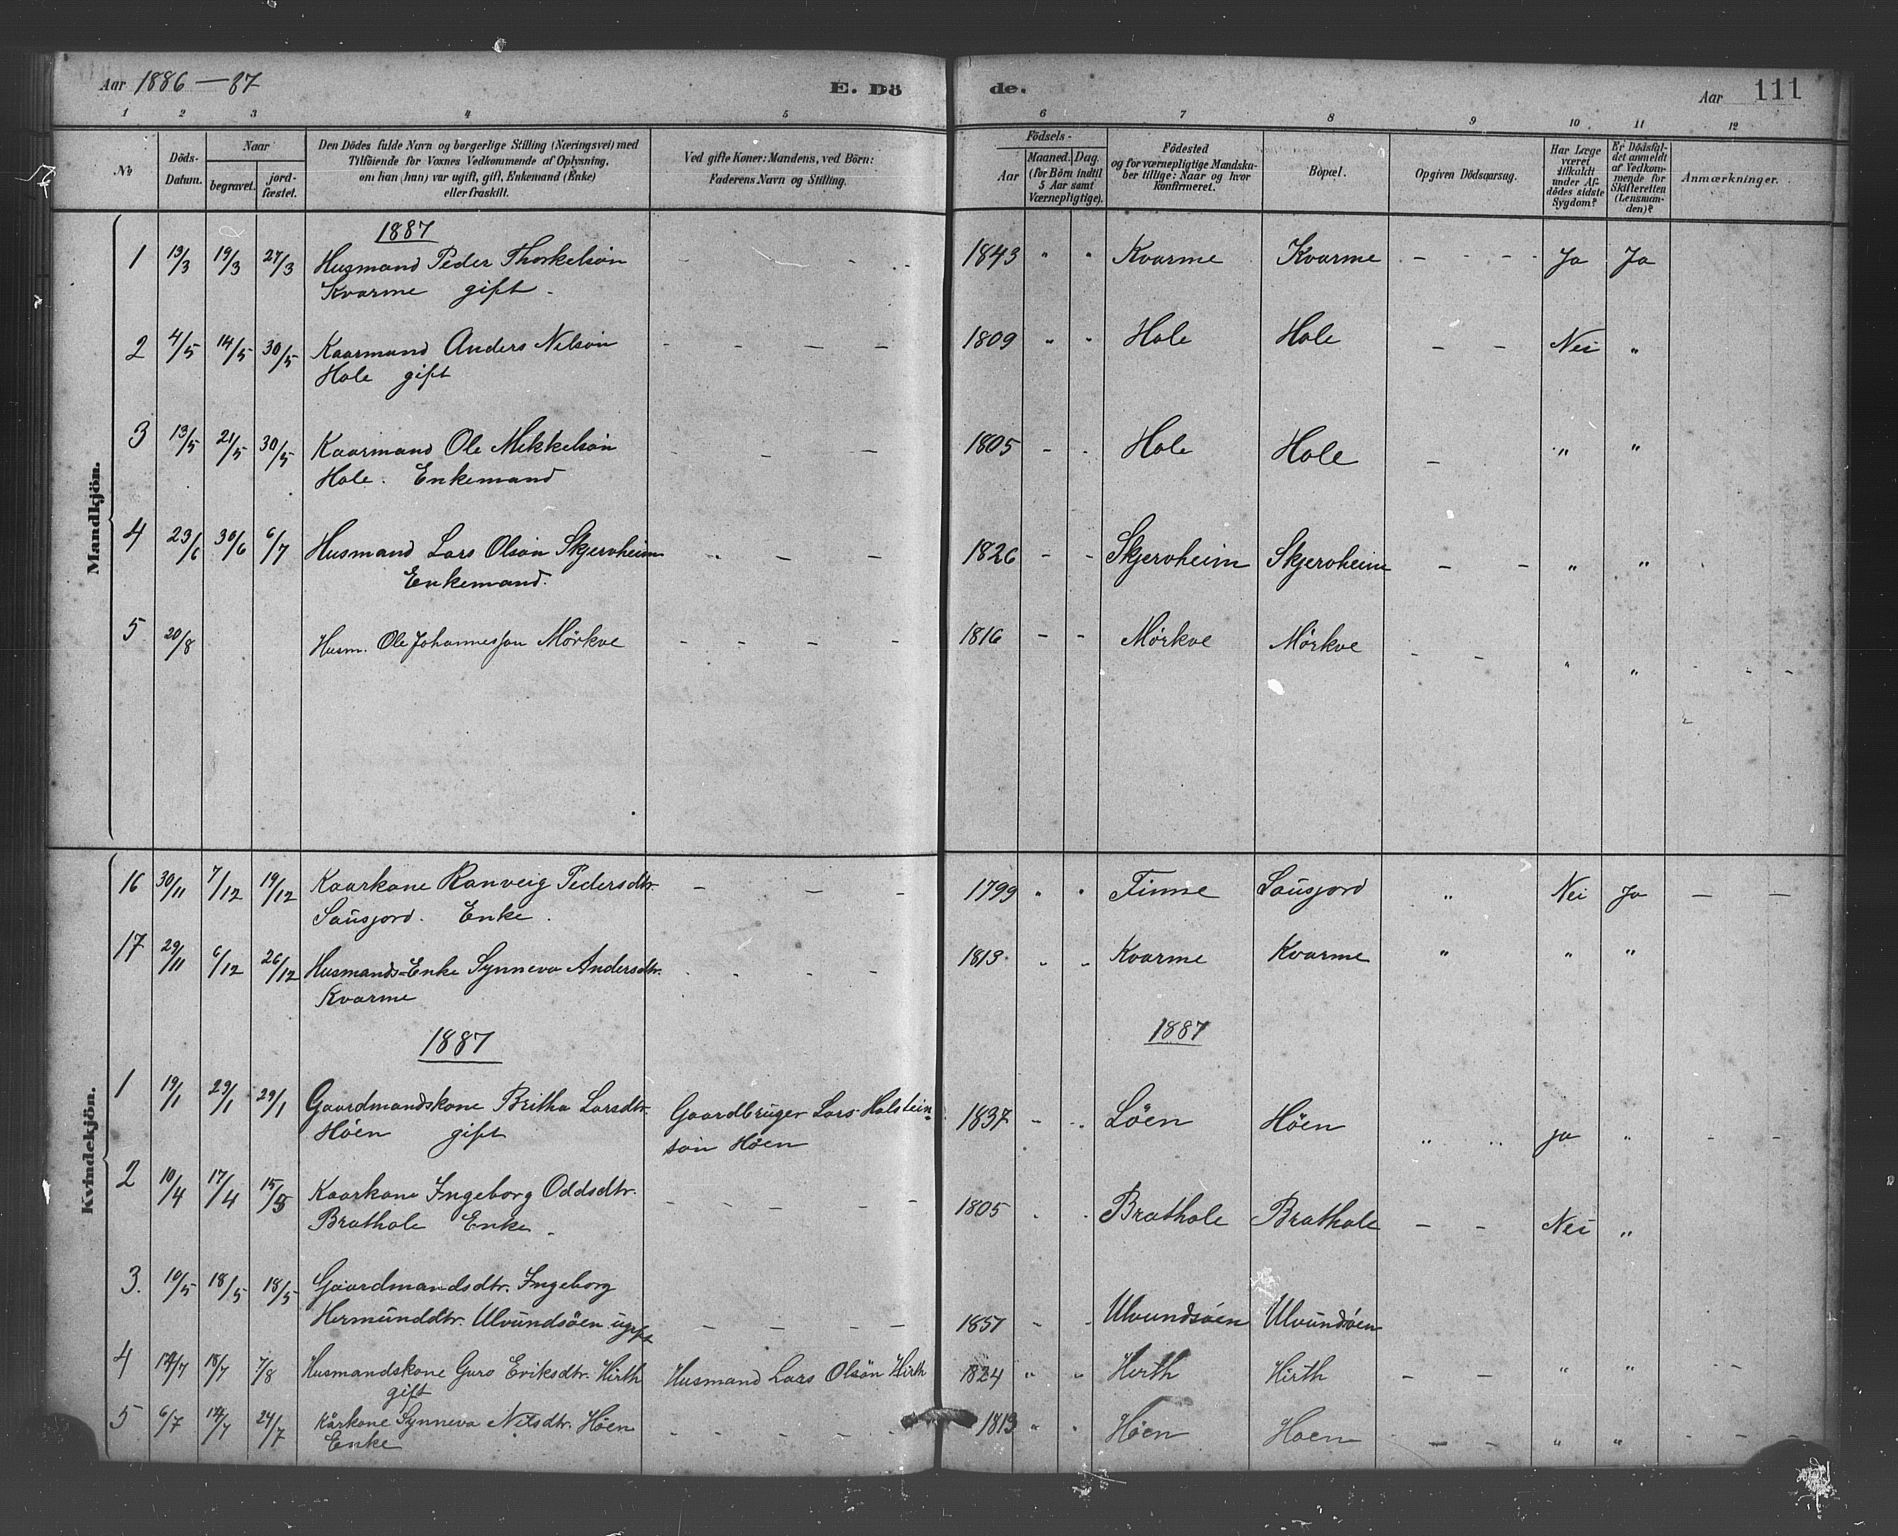 Aar 1886 — 87 E. Dö de. Aar 111
1 2 3 4 5 6 7 8 9 10 11 12
No
Döds-Datum.
Naar
begravet.
jord-fæstet.
Den Dödes fulde Navn og borgerlige Stilling (Næringsvei) med
Tilföiende for Voxnes Vedkommende af Oplysning,
om han (hun) var ugift, gift, Enkemand (Enke)
eller fraskilt.
Ved gifte Koner: Mandens, ved Börn:
Faderens Navn og Stilling.
Födsels-
Aar
Maaned. Dag.
(for Börn indtil
5 Aar samt
Værnepligtige).
Födested
og for værnepligtige Mandska-
ber tillige: Naar og hvor
konfirmeret.
Bopæl.
Opgiven Dödsaarsag.
Har Læge
været
tilkaldt
under Af-
dödes sidste
Sygdom?
Er Dödsfal-
det anmeldt
af Vedkom-
mende for
Skifteretten
(Lensman-
den)?
Anmærkninger.
Mandkjön.
1887
1 13/3 19/3 27/3 Husmand Peder Thorkelsøn - - - - 1843 " " Kvarme Kvarme - - - - Ja Ja
Kvarme gift -
2 4/5 14/5 30/5 Kaarmand Anders Nilsøn - - - - 1809 " " Hole Hole - - Nei "
Hole gift
3 13/5 21/5 30/5 Kaarmand Ole Mikkelsøn - - - 1805 - - Hole Hole - " "
Hole. Enkemand
4 23/6 30/6 6/7 Husmand Lars Olsøn Skjervheim " - - 1826 - - Skjervheim Skjervheim - - " "
Enkemand.
5 20/8 Husm. Ole Johannesson Mørkve - - - - 1816 - - Mørkve Mørkve - - " " - -
Kvindekjön.
16 30/11 7/12 19/12 Kaarkone Ranveig Pedersdtr. - - - 1799 " " Finne Sausjord " Nei Ja - -
Sausjord. Enke.
17 29/11 6/12 26/12 Husmands-Enke Synneva Andersdtr. - - - - 1813 " " Kvarme Kvarme " " "
Kvarme
1887 1887
1 19/1 29/1 29/1 Gaardmandskone Britha Larsdtr. Gaardbruger Lars Halstein- 1837 - - Løen Høen " " ja " - -
Høen gift søn Høen
2 10/4 17/4 15/5 Kaarkone Ingeborg Oddsdtr. - - - - 1805 " " Brathole Brathole - - Nei "
Brathole Enke -
3. 10/5 18/5 18/5 Gaardmandsdtr. Ingeborg
Hermunddtr. Ulvundsøen ugift - - - - 1857 - - Ulvundsøen Ulvundsøen
4 18/7 7/8 Husmandskone Guro Eriksdtr. Hirth Husmand Lars Olsøn Hirth 1824 " " Hirth Hirth - - " "
gift
5 6/7 24/7 Kårkone Synneva Nilsdtr. Høen - - - - - 1813 " " Høen Høen - - " " - - -
Enke